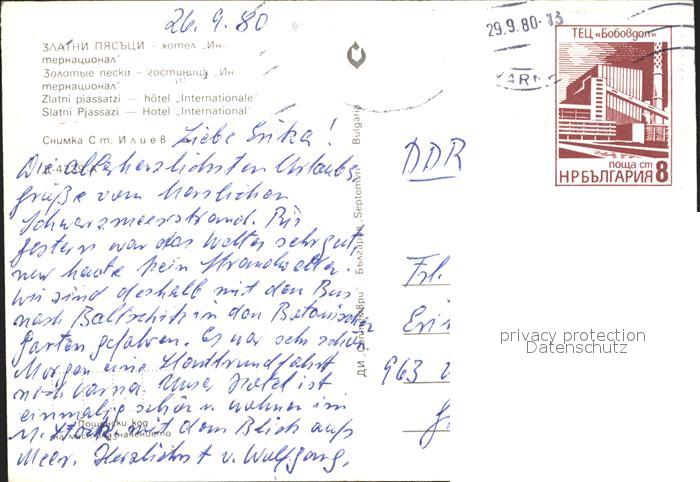 26.9.80
29.9.80-13
ЗЛАТНИ ПЯСЪЦИ — хотел „Ин-
тернационал"
Золотые пески — гостиница „Ин-
тернационал"
Zlatni piassatzi — hôtel „Internationale"
Slatni Pjassazi — Hotel „International"
Снимка Ст. Илиев
Liebe Erika!
Die allerherzlichsten Urlaubs-
grüße vom herrlichen
Schwarzmeerstrand. Bis
gestern war das Wetter sehr gut,
nur heute kein Strandwetter.
Wir sind deshalb mit dem Bus
nach Baltschik in den Botanischen
Garten gefahren. Es war sehr schön.
Morgen eine Stadtrundfahrt
nach Varna. Unser Hotel ist
einmalig schön u. wohnen im
Stock mit dem Blick aufs
Meer. Herzlichst v. Wolfgang.
Пощенски код
на местоназначението
ДИ „Септември" България „Septemvri" Bulgaria
DDR
Frl.
Eri
963
ТЕЦ «Бобовдол»
поща ст 8
НР БЪЛГАРИЯ
privacy protection
Datenschutz